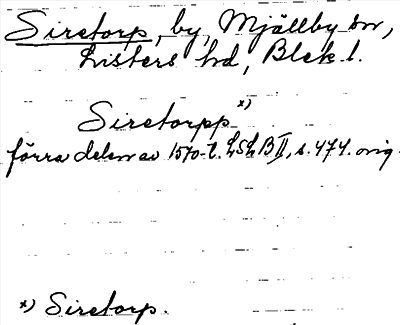 Siretorp, by, Mjällby sn,
Listers hd, Blek. l.
Siretorpp x)
förra delen av 1570-t. LSH B II, s. 474. orig.
x) Siretorp.